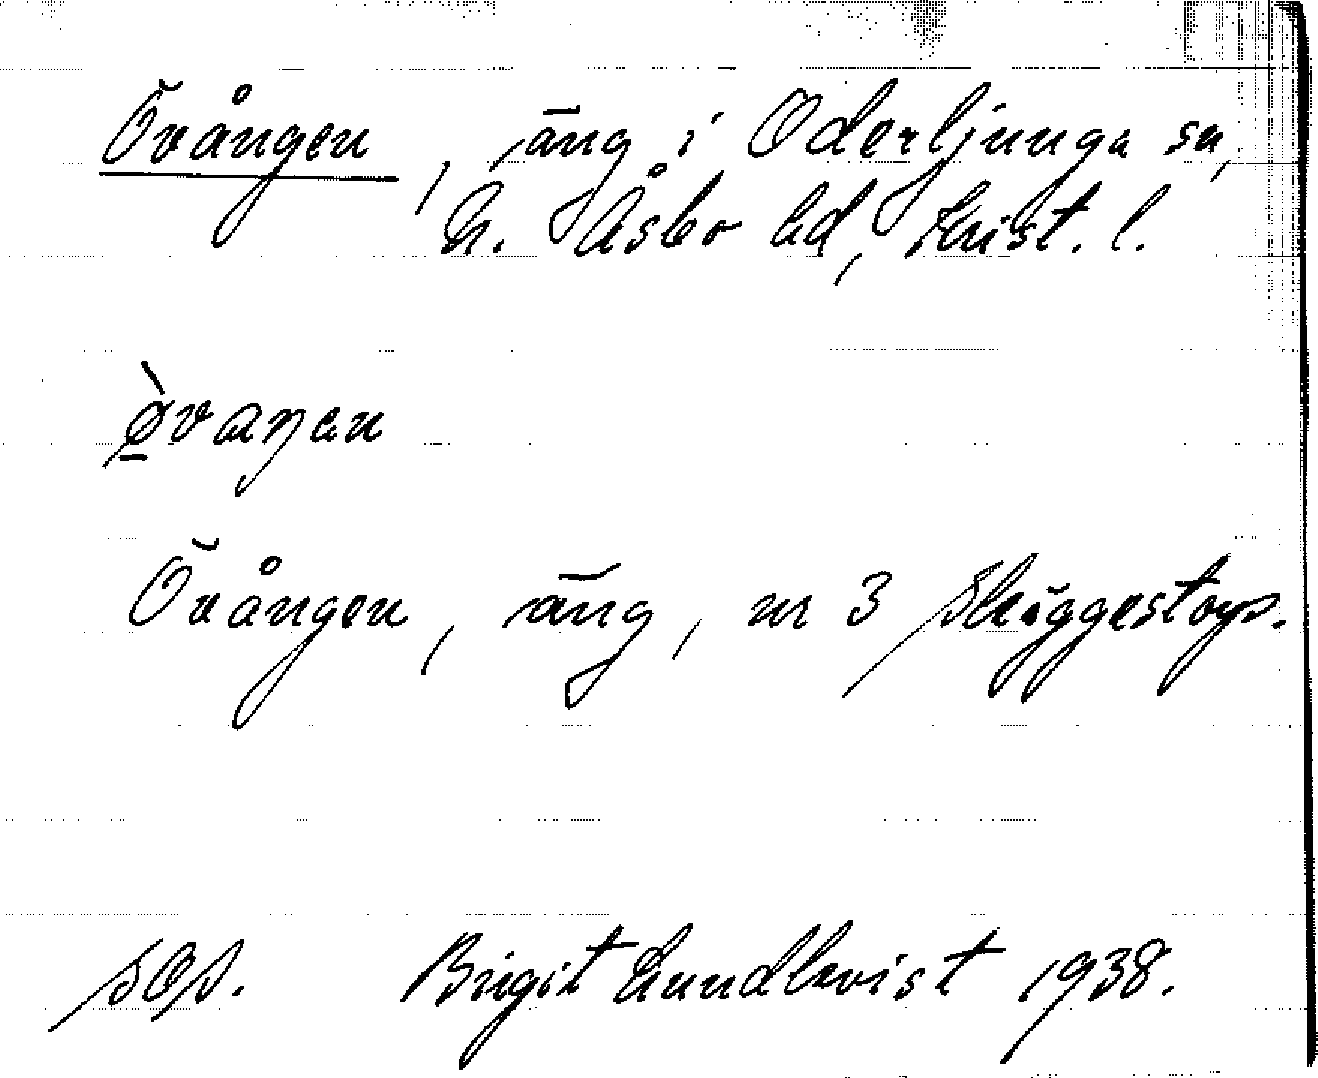 Övången, äng i Oderljunga sn,
N. Åsbo hd, Krist. l.
ø̀vaŋen
Övången, äng, nr 3 Skäggestorp.
SOA. Birgit Lundkvist 1938.